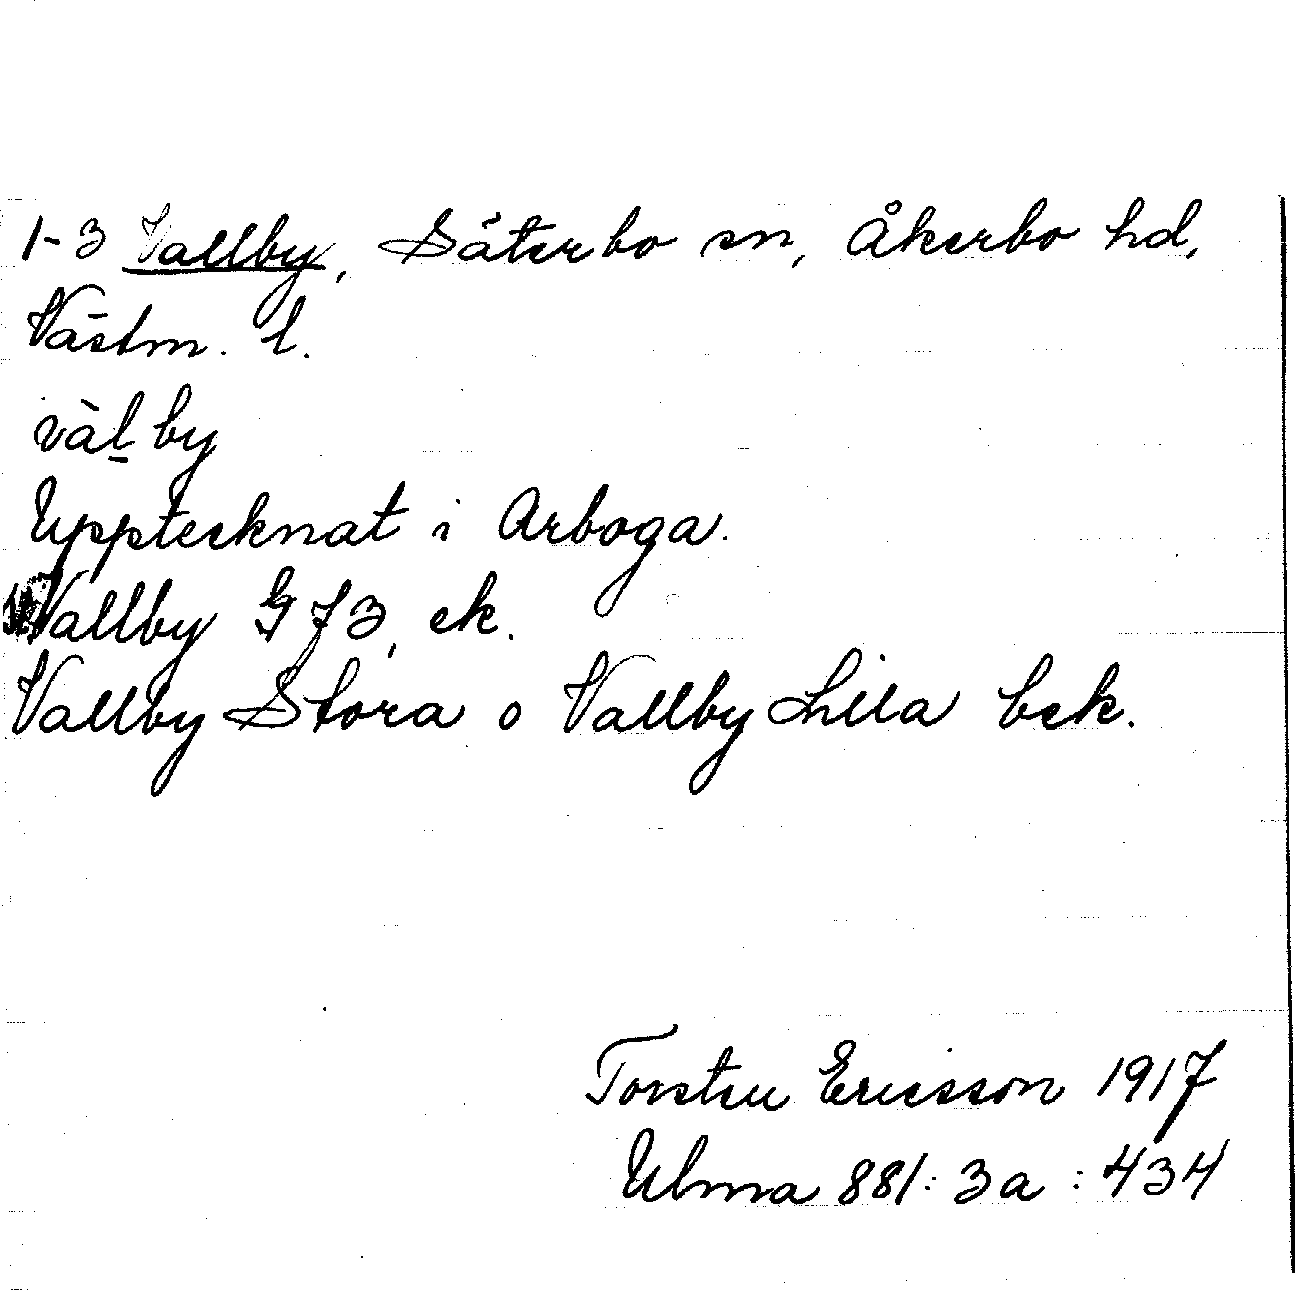 1-3 Vallby, Säterbo sn, Åkerbo hd,
Västm. l.
vàl̲by
Upptecknat i Arboga.
Vallby G J 3, ek.
Vallby Stora o Vallby Lilla bek.
Torsten Ericsson 1917
Ulma 881:3a:434